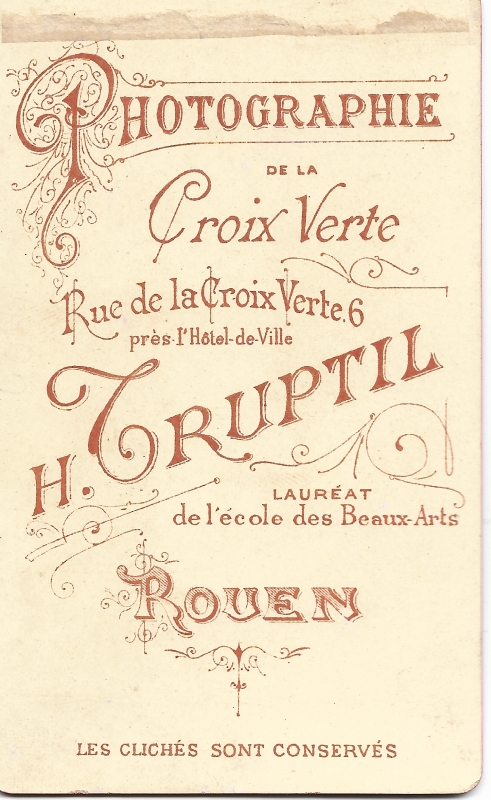 PHOTOGRAPHIE
DE LA
Croix Verte
Rue de la Croix Verte.6
près l'Hôtel-de-Ville
H. TRUPTIL
LAURÉAT
de l'école des Beaux-Arts
ROUEN
LES CLICHÉS SONT CONSERVÉS